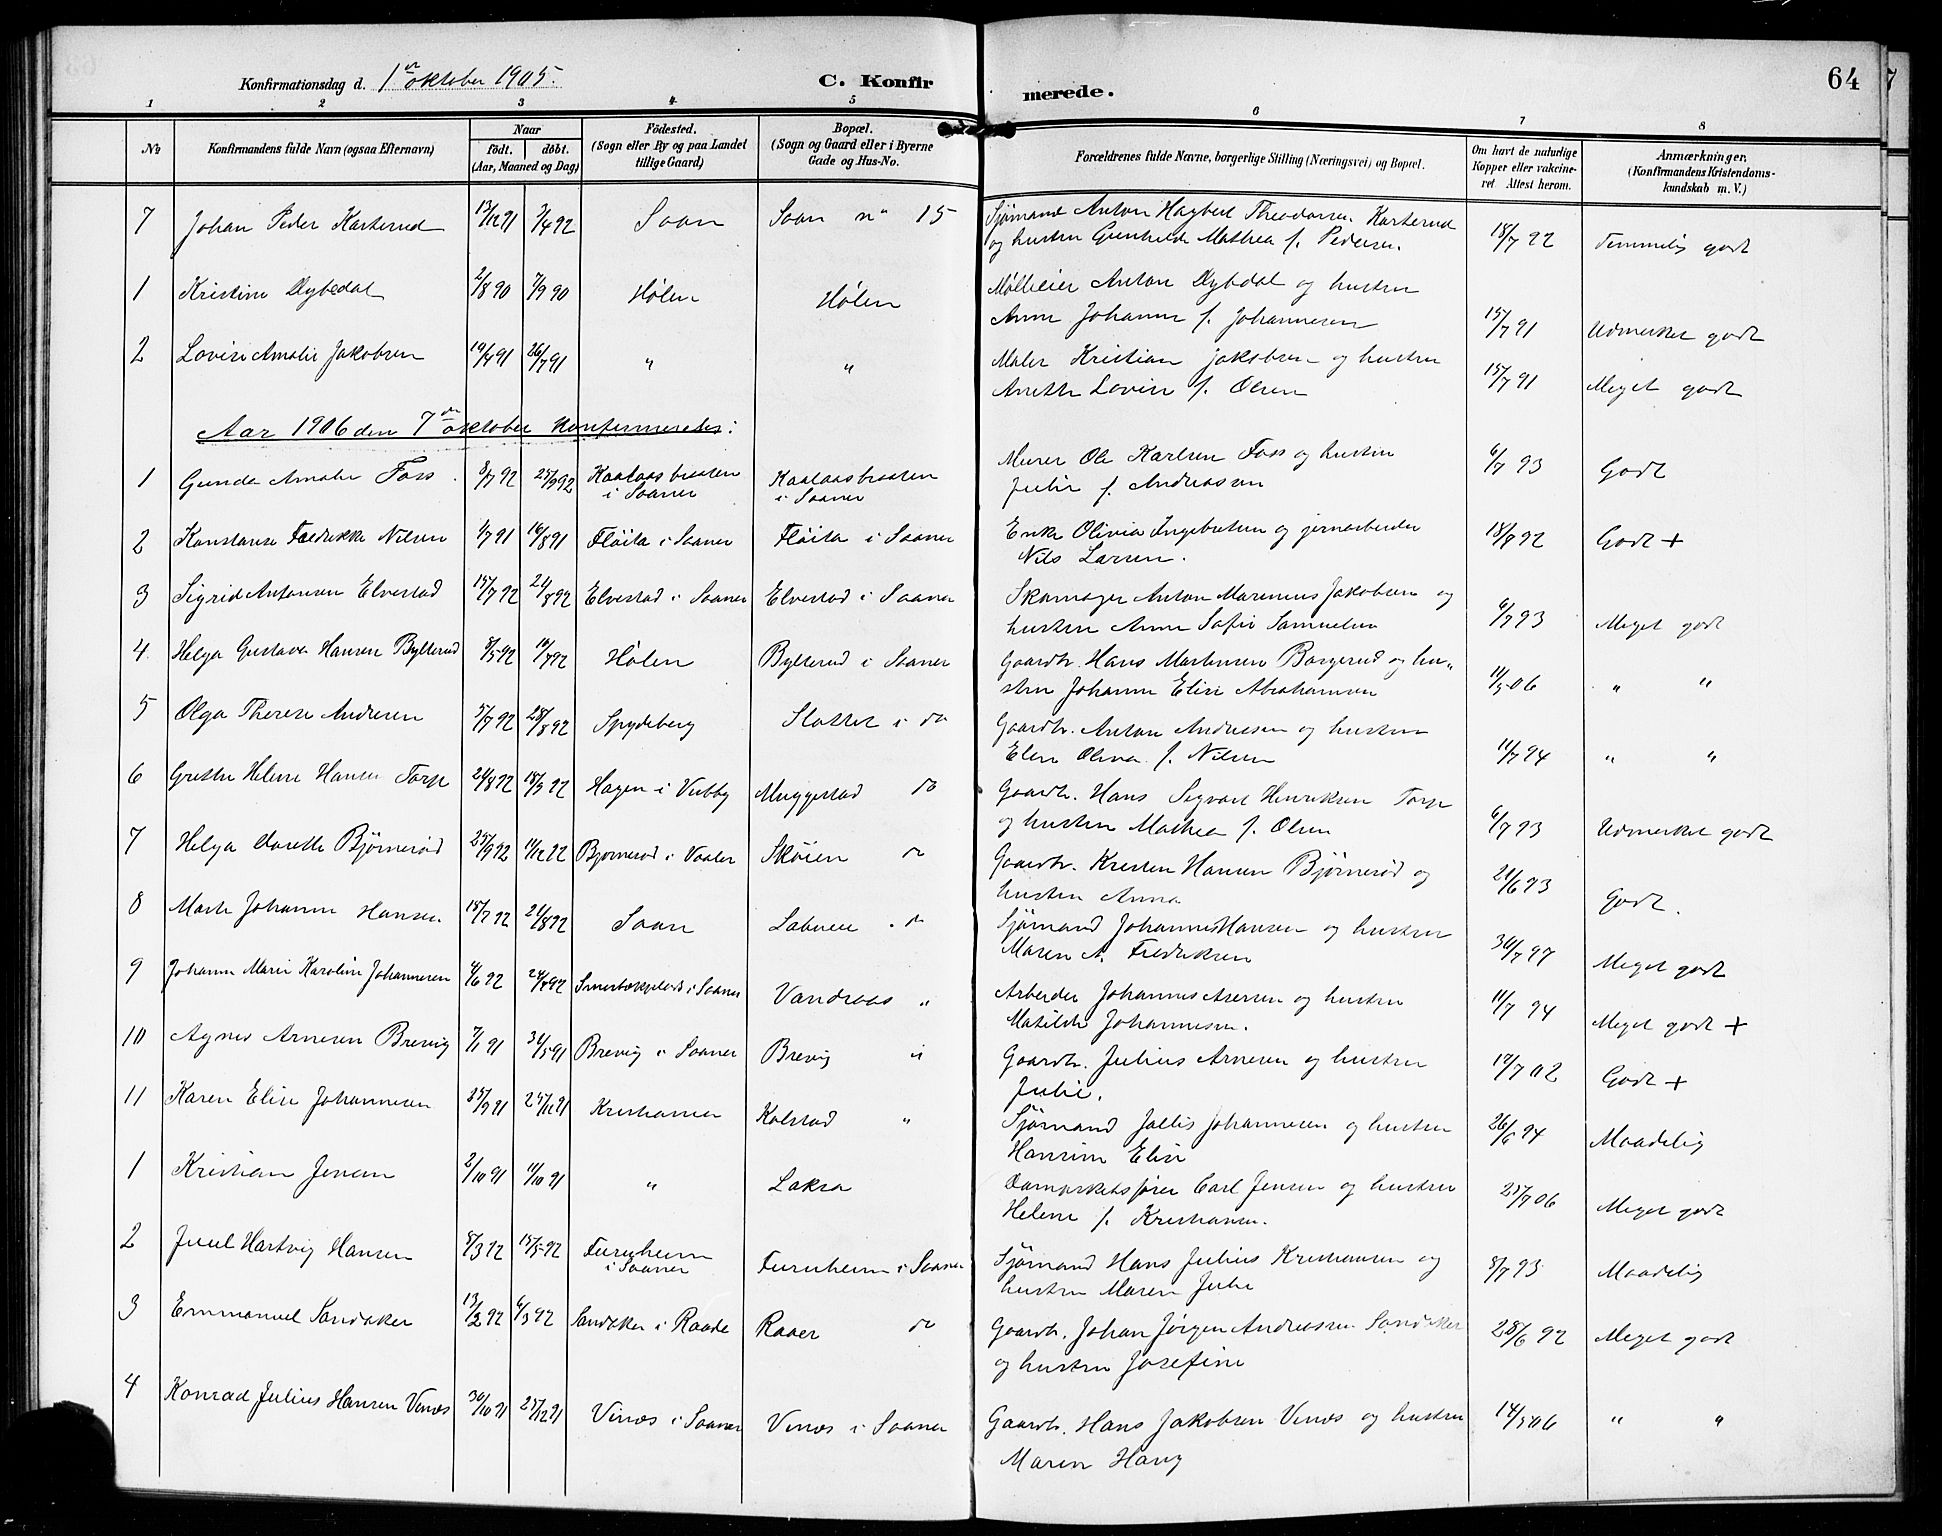 64
Konfirmationsdag d. 1ste oktober 1905. C. Konfirmerede.
1 2 3 4 5 6 7 8
No
Konfirmandens fulde Navn (ogsaa Efternavn)
Naar
födt. döbt.
(Aar, Maaned og Dag)
Födested.
(Sogn eller By og paa Landet
tillige Gaard)
Bopæl.
(Sogn og Gaard eller i Byerne
Gade og Hus-No.
Forældrenes fulde Navne, borgerlige Stilling (Næringsvei) og Bopæl.
Om havt de naturlige
Kopper eller vakcine-
ret Attest herom.
Anmærkninger.
(Konfirmandens Kristendoms-
kundskab m. V.)
7 Johan Peder Karterud 13/12 91 3/4 92 Soon Soon no 15 Sjømand Anton Hagbert Theodorsen Karterud
og hustru Gunhilde Mathea f. Pedersen. 18/7 92 Temmelig godt
1 Kristine Dybedal 2/8 90 7/9 90 Hølen Hølen Mølleeier Anton Dybdal og hustru
Anne Johanne f. Johannesen 15/7 91 Udmerket godt
2 Lovise Amalie Jakobsen 19/4 91 26/7 91 " " Maler Kristian Jakobsen og hustru
Anette Lovise f. Olsen 15/7 91 Meget godt
Aar 1906 den 7de oktober konfirmeredes:
1 Gunda Amalie Foss 8/7 92 25/9 92 Kaalaasbraaten
i Saaner Kaalaasbraaten
i Saaner Murer Ole Karlsen Foss og hustru
Julie f. Andreassen 6/7 93 Godt
2 Konstanse Fredrikke Nilsen 1/7 91 16/8 91 Fløita i Saaner Fløita i Saaner Enke Olivia Ingebretsen og jernarbeider
Nils Larsen. 18/7 92 Godt +
3 Sigrid Antonsen Elvestad 15/7 92 21/8 92 Elvestad i Saaner Elvestad i Saaner Skomager Anton Marenius Jakobsen og
hustru Anne Sofie Samuelsen 6/7 93 Meget godt
4 Helga Gustava Hansen Bylterud 8/5 92 10/7 92 Hølen Bylterud i Saaner Gaardb. Hans Martinsen Borgerud og hu-
stru Johanne Elise Abrahamsen 11/5 06 " "
5 Olga Therese Andresen 5/7 92 28/8 92 Spydeberg Slottet i do Gaardb. Anton Andresen og hustru
Elen Oliva f. Nilsen 11/7 94 " "
6 Grethe Helene Hansen Torp 24/8 92 18/9 92 Hagen i Vestby Muggestad do Gaardb. Hans Sigvart Henriksen Torp
og hustru Mathea f. Olsen 6/7 93 Udmerket godt
7 Helga Dorette Bjørnerød 25/9 92 11/12 92 Bjørnerød i Vaaler Skøien do Gaardb. Kristen Hansen Bjørnerød og
hustru Anna 21/6 93 Godt.
8 Marte Johanne Hansen 18/7 92 21/8 92 Soon Labueie do Sjømand Johannes Hansen og hustru
Maren A. Fredriksen 30/7 97 Meget godt
9 Johanne Marie Karoline Johannesen 4/6 92 24/7 92 i Saaner Vandraas " Arbeider Johannes Aresen og hustru
Matilde Johannesen. 11/7 94 Meget godt +
10 Agnes Arnesen Brevig 7/1 91 31/5 91 Brevig i Saaner Brevig " Gaardb. Julius Arnesen og hustru
Julie. 17/7 02 Godt +
11 Karen Elise Johannesen 25/9 91 25/12 91 Kristiania Kolstad " Sjømand Johannesen og hustru
Hansine Elise 26/6 94 Maadelig
1 Kristian Jensen 2/10 91 11/10 91 " Laksa Damparketsfører Carl Jensen og hustru
Helene f. Kristiansen. 25/7 06 Meget godt
2 Juul Hartvig Hansen 8/3 92 15/5 92 Furuheim
i Saaner Furuheim i Saaner Sjømand Hans Julius Kristiansen og
hustru Maren Julie 8/7 93 Maadelig
3 Emmanuel Sandaker 13/2 92 6/3 92 Sandaker i Raade Raaer do Gaardb. Johan Jørgen Andreassen Sandaker
og hustru Josefine 28/6 92 Meget godt
4 Konrad Julius Hansen Vinæs 30/10 91 25/12 91 Vinæs i Saaner Vinæs i Saaner Gaardb. Hans Jakobsen Vinæs og hustru
Maren Haug 14/5 06 " "